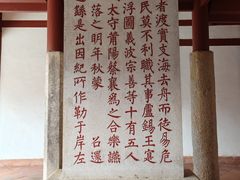 者渡實支海去舟而徙易危
民莫不利職其事盧錫王寔
浮圖義波宗善等十有五人
太守莆陽蔡襄為之合樂讌
落之明年秋蒙 召還
繇是出因紀所作勒于岸左